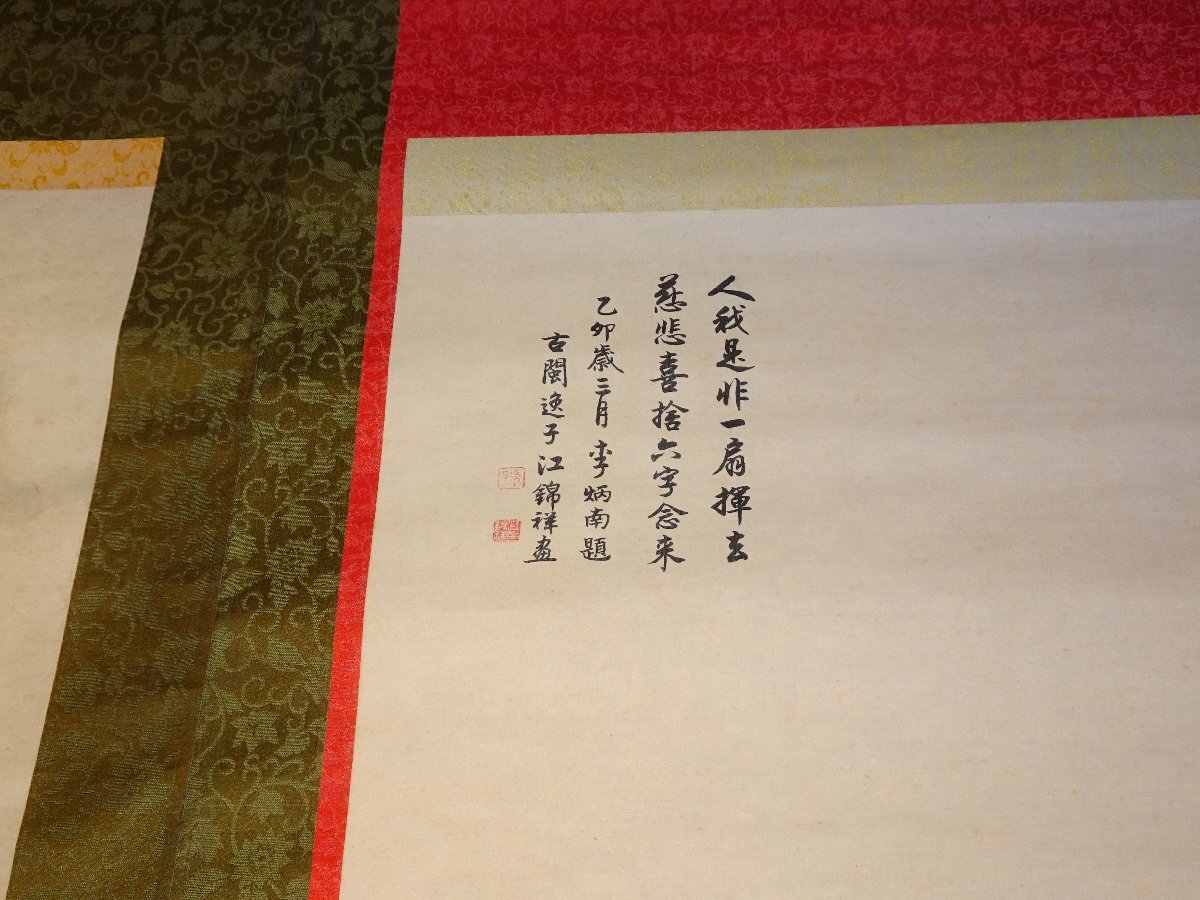 人我是非一扇揮去
慈悲喜捨六字念来
乙卯歲三月李炳南題
古閩逸子江錦祥畫